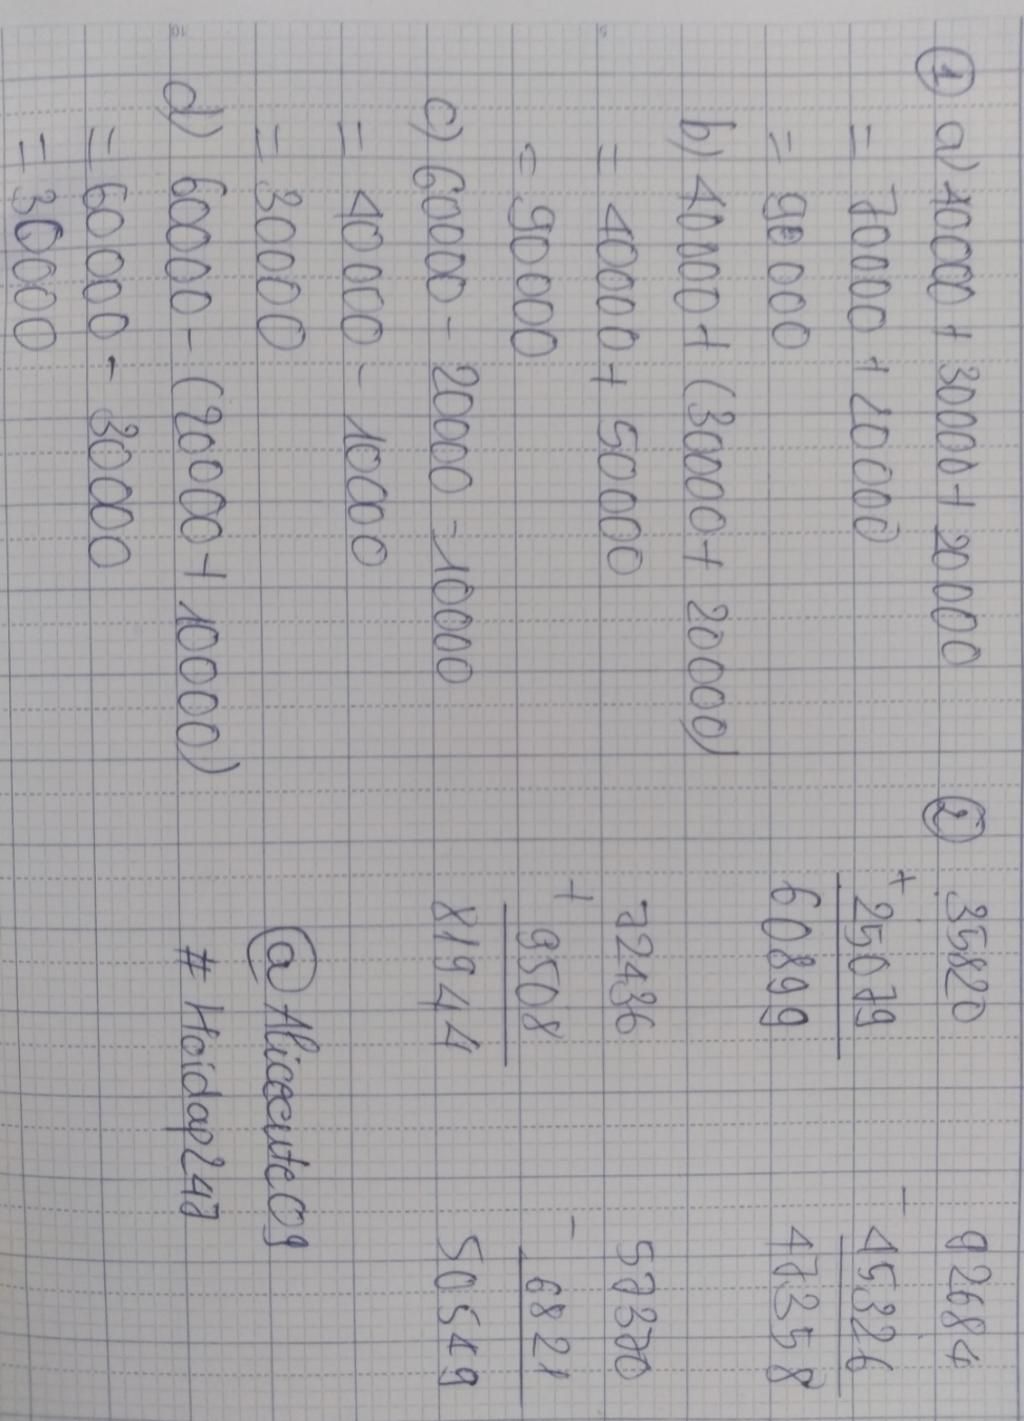 1 a) 40000 + 30000 + 20000
= 70000 + 20000
= 90000
b) 40000 + (30000 + 20000)
= 40000 + 50000
= 90000
c) 60000 - 20000 - 10000
= 40000 - 10000
= 30000
d) 60000 - (20000 + 10000)
= 60000 - 30000
= 30000
2 35820
+ 25079
60899
92684
- 45326
47358
72436
+ 9508
81944
57370
- 6821
50549
@Alicecute09
# Hoidap247